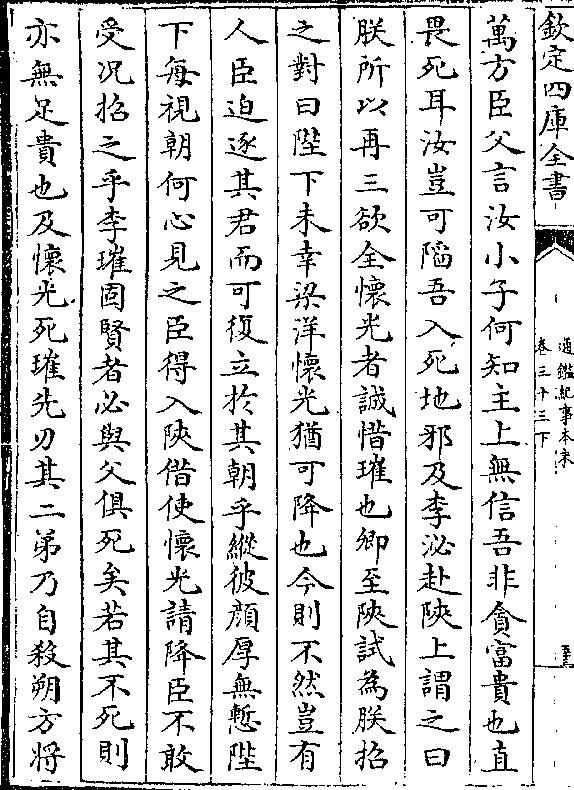 欽定四庫全書
通鑑紀事本末
卷三十三下
萬方臣父言汝小子何知主上無信吾非貪富貴也直
畏死耳汝豈可陷吾入死地邪及李泌赴陝上謂之曰
朕所以再三欲全懷光者誠惜璀也卿至陝試為朕招
之對曰陛下未幸梁洋懷光猶可降也今則不然豈有
人臣迫逐其君而可復立於其朝乎縱彼顔厚無慙陛
下每視朝何心見之臣得入陝借使懷光請降臣不敢
受况招之乎李璀固賢者必與父俱死矣若其不死則
亦無足貴也及懷光死璀先刃其二弟乃自殺朔方將